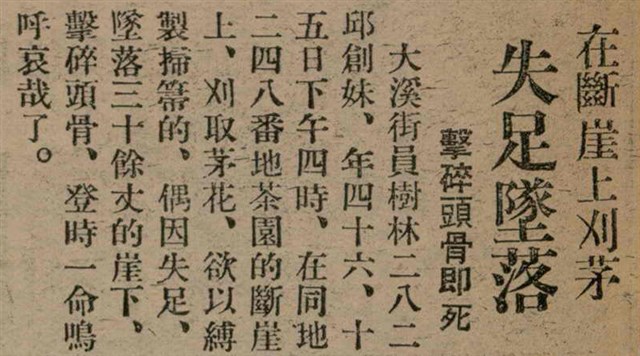 在斷崖上刈茅
失足墜落
擊碎頭骨即死
大溪街員樹林二八二
邱創妹、年四十六、十
五日下午四時、在同地
二四八番地茶園的斷崖
上、刈取茅花、欲以縛
製掃箒的、偶因失足、
墜落三十餘丈的崖下、
擊碎頭骨、登時一命鳴
呼哀哉了。